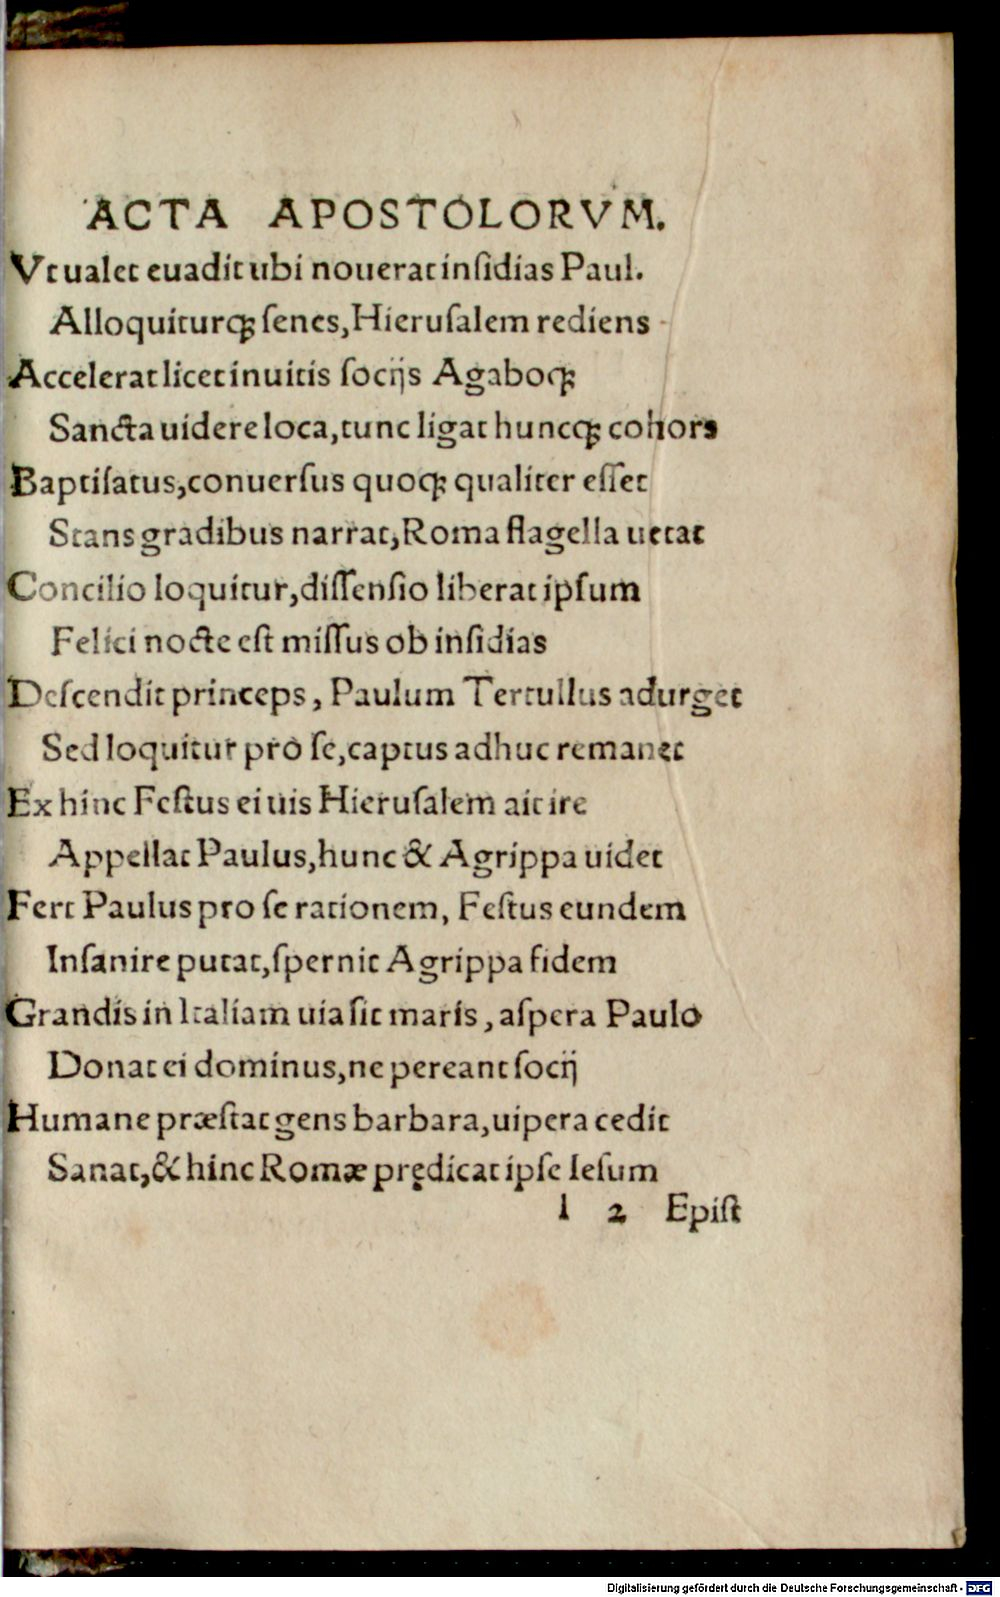 ACTA APOSTOLORVM.
Vt ualet euadit ubi nouerat inſidias Paul.
Alloquiturq; ſenes, Hieruſalem rediens
Accelerat licet inuitis ſocijs Agaboq;
Sancta uidere loca, tunc ligat huncq; cohors
Baptiſatus, conuerſus quoq; qualiter eſſet
Stans gradibus narrat, Roma flagella uetat
Concilio loquitur, diſſenſio liberat ipſum
Felici nocte eſt miſſus ob inſidias
Deſcendit princeps, Paulum Tertullus adurget
Sed loquitur pro ſe, captus adhuc remanet
Ex hinc Feſtus ei uis Hieruſalem ait ire
Appellat Paulus, hunc & Agrippa uidet
Fert Paulus pro ſe rationem, Feſtus eundem
Inſanire putat, ſpernit Agrippa fidem
Grandis in Italiam uia ſit maris, aſpera Paulo
Donat ei dominus, ne pereant ſocij
Humane præſtat gens barbara, uipera cedit
Sanat, & hinc Romæ prędicat ipſe Ieſum
l 2 Epiſt
Digitalisierung gefördert durch die Deutsche Forschungsgemeinschaft - DFG